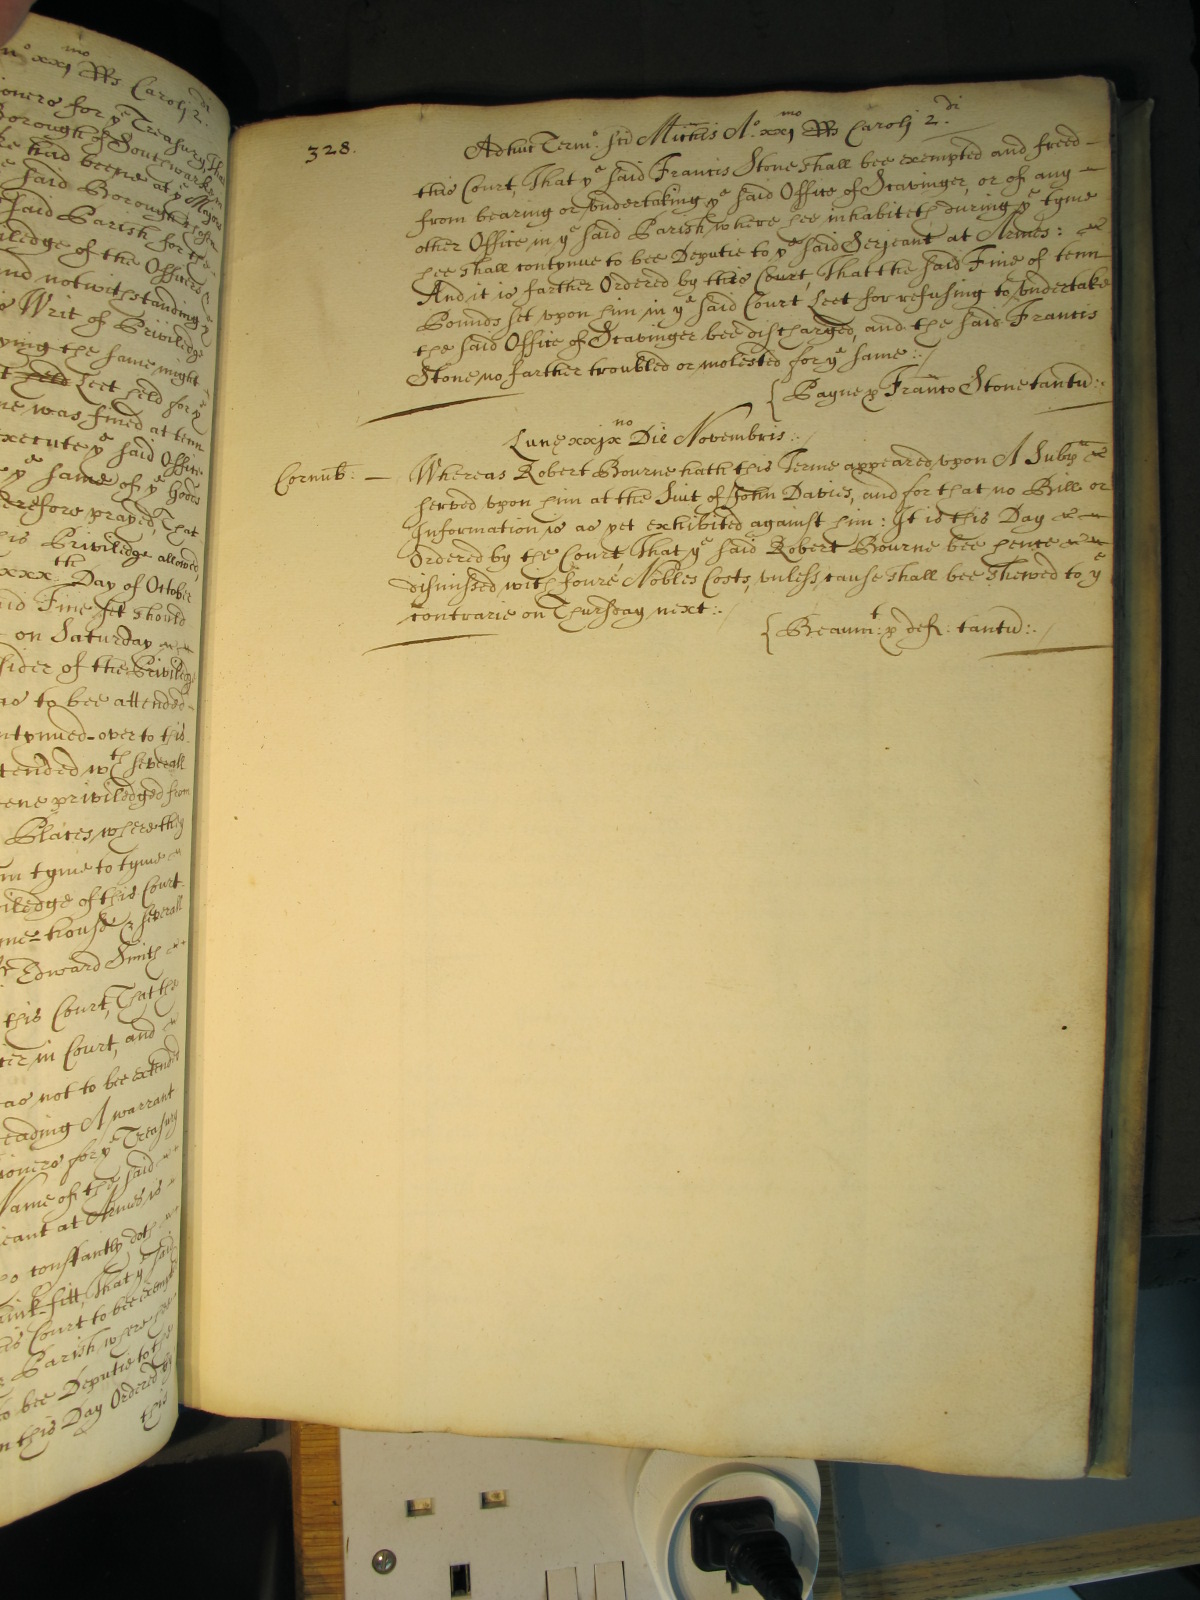 no xxj mo RRs Caroli 2 di
ioners for ye Treasury, That
Borough of Southwarke in
ke had beene at ye Mayors
e said Borough
said Parish for the
iledge of the Officers &
and notwithstanding
s Writ of Priviledge
ying the same might
t held Leet held for ye
ne was fined at tenn
execute ye said Office
e ye same of ye goods
erefore prayed, That
his Priviledge allowed,
xxx th Day of October
id Fine set should
on Saturday
sider of the Priviledge
as to bee attended
ntynued over to this
tended wth severall
eene priviledged from
Places where they
m tyme to tyme
iledge of this Court
house & severall
Edward Smith
this Court, That the
ter in Court, and
as not to bee extended
reading A warrant
ioners for ye Treasury
Name of the said
eant at Armes is
o constantly doth
fitt, That ye said
is Court to bee exempted
Parish where hee
o bee Deputie to the
n this Day Ordered by
this
328.
Adhuc Term.o Scti Mich̄is A.o xxj mo RRs Caroli 2. di
this Court, That ye said Francis Stone shall bee exempted and freed
from bearing or undertaking ye said Office of Scavinger, or of any
other Office in ye said Parish where hee inhabiteth during ye tyme
hee shall contynue to bee Deputie to ye said Serjeant at Armes:
And it is farther Ordered by this Court, That the said Fine of tenn
Pounds set upon him in ye said Court Leet for refusing to undertake
the said Office of Scavinger bee discharged, and the said Francis
Stone no farther troubled or molested for ye same :./
{ Payne p Franco Stone tantu͂:.
Lune xxjx no Die Novembris :./
Cornub̄: — Whereas Robert Bourne hath this Terme appeared upon A Subpa
served upon him at the Suit of John Davies, and for that no Bill or
Information is as yet exhibited against him: It is this Day
Ordered by the Court That ye said Robert Bourne bee hence
dismissed with foure Nobles Costs, unless cause shall bee shewed to ye
contrarie on Thursday next :.
{ Beaumt: p def: tantu͂:./